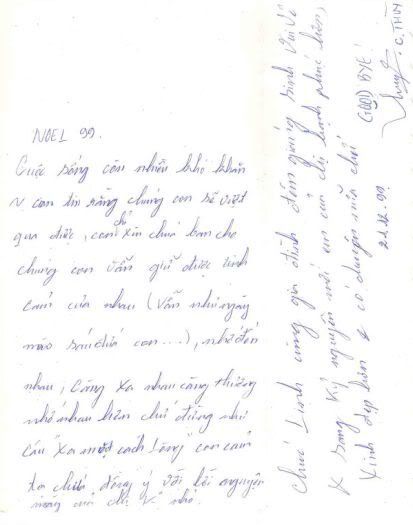 NOEL 99.
Cuộc sống còn nhiều khó khăn
v con tin rằng chúng con sẽ vượt
qua được, con chỉ xin chúa ban cho
chúng con vẫn giữ được tình
cảm của nhau (Vẫn như ngày
nào sáu đứa con...), nhớ đến
nhau, Càng xa nhau càng thương
nhớ nhau hơn chứ đừng như
câu "Xa mặt cách lòng" con cảm
tạ chúa đồng ý với lời nguyện
của chị
Chúc Linh cùng gia đình đêm giáng sinh Vui Vẻ
sang kỷ nguyên mới em của chị hạnh phúc hơn,
Xinh đẹp hơn có duyên nữa chớ!
21.12.99
GOOD BYE!
C. THIN